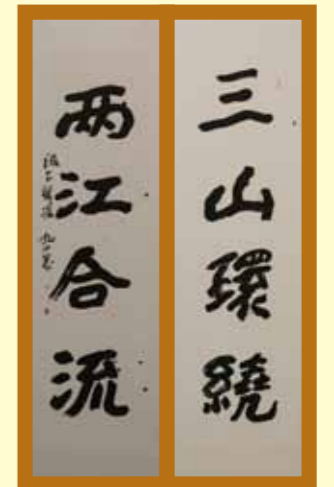 三山環繞
两江合流